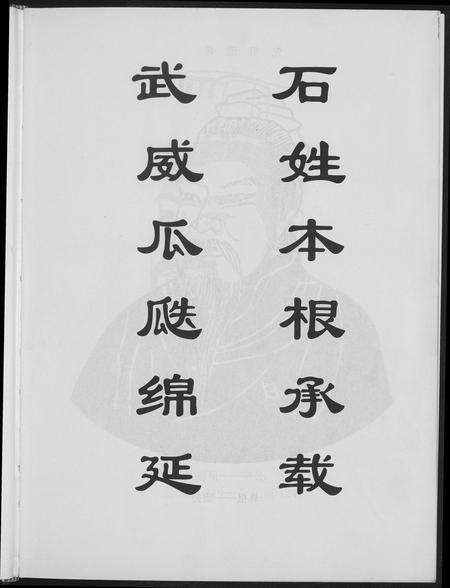 石姓本根承载
武威瓜瓞绵延